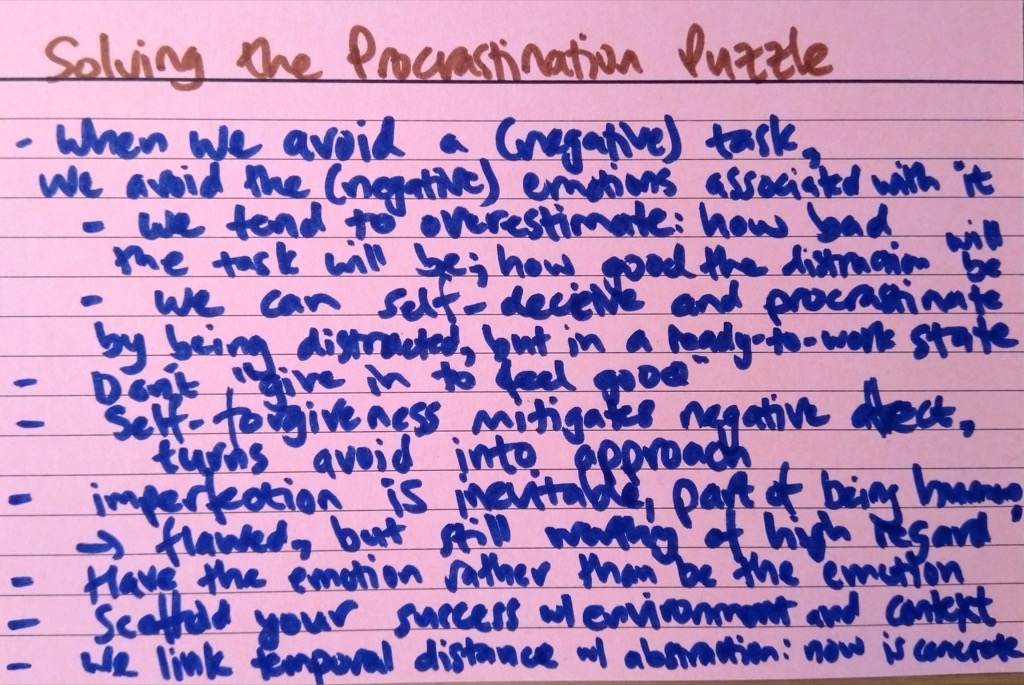 Solving the Procrastination Puzzle
- When we avoid a (negative) task,
we avoid the (negative) emotions associated with it
- We tend to overestimate: how bad
the task will be; how good the distraction will be
- We can self-deceive and procrastinate
by being distracted, but in a ready-to-work state
- Don't "give in to feel good"
- Self-forgiveness mitigates negative affect,
turns avoid into approach
- imperfection is inevitable, part of being human,
→ flawed, but still worthy of high regard
- Have the emotion rather than be the emotion
- Scaffold your success w/ environment and context
- We link temporal distance w/ abstraction: now is concrete